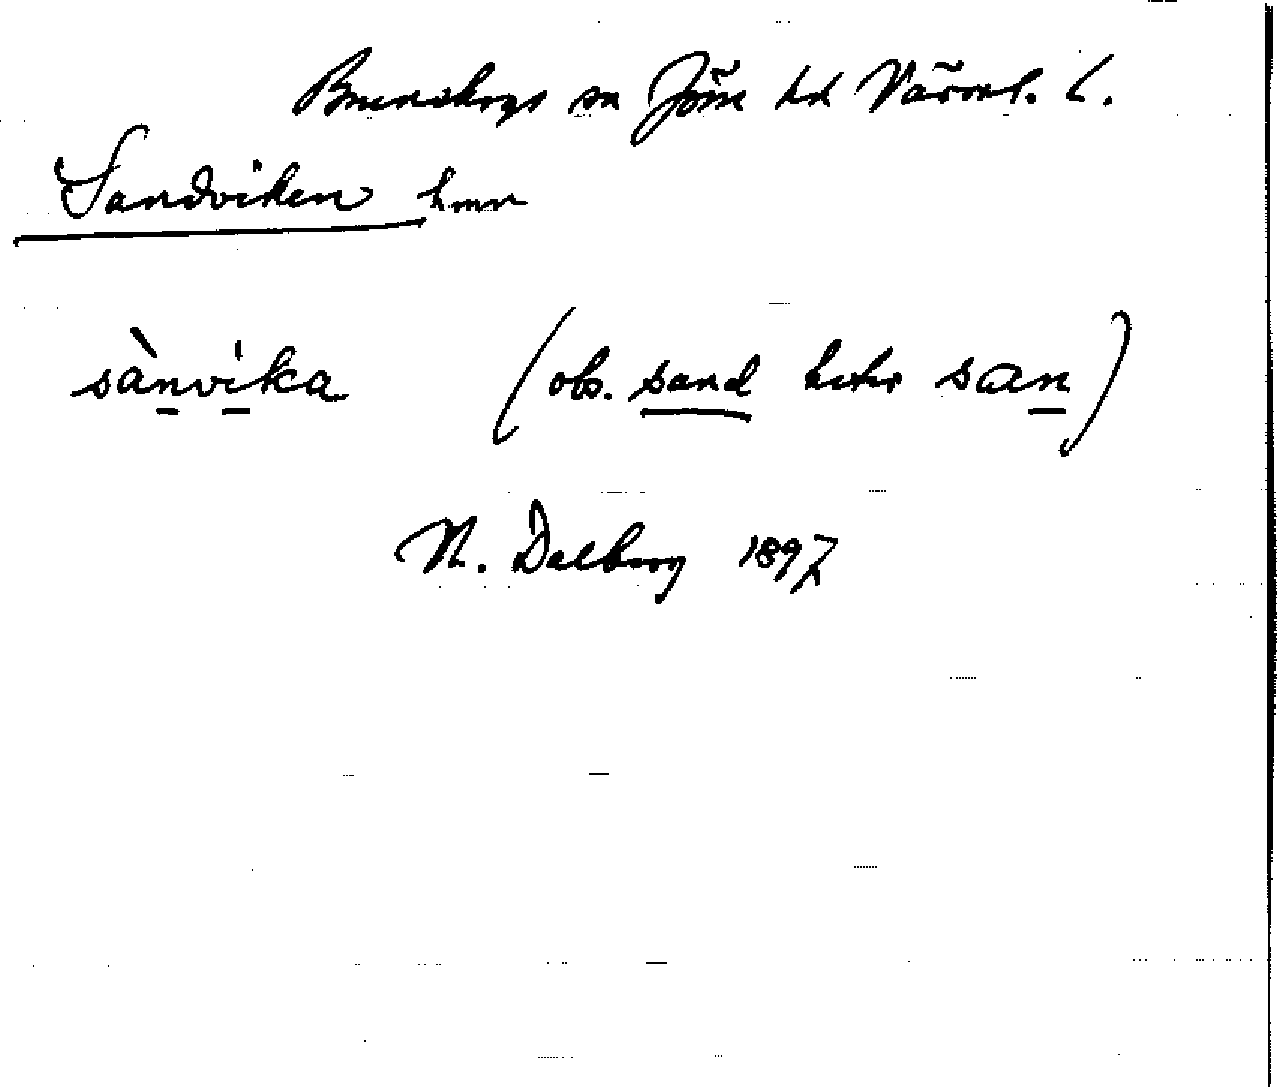 Brunskogs sn Jösse hd Värml. l.
Sandviken hmn
sànvika (obs. sand heter san)
N. Dalberg 1897